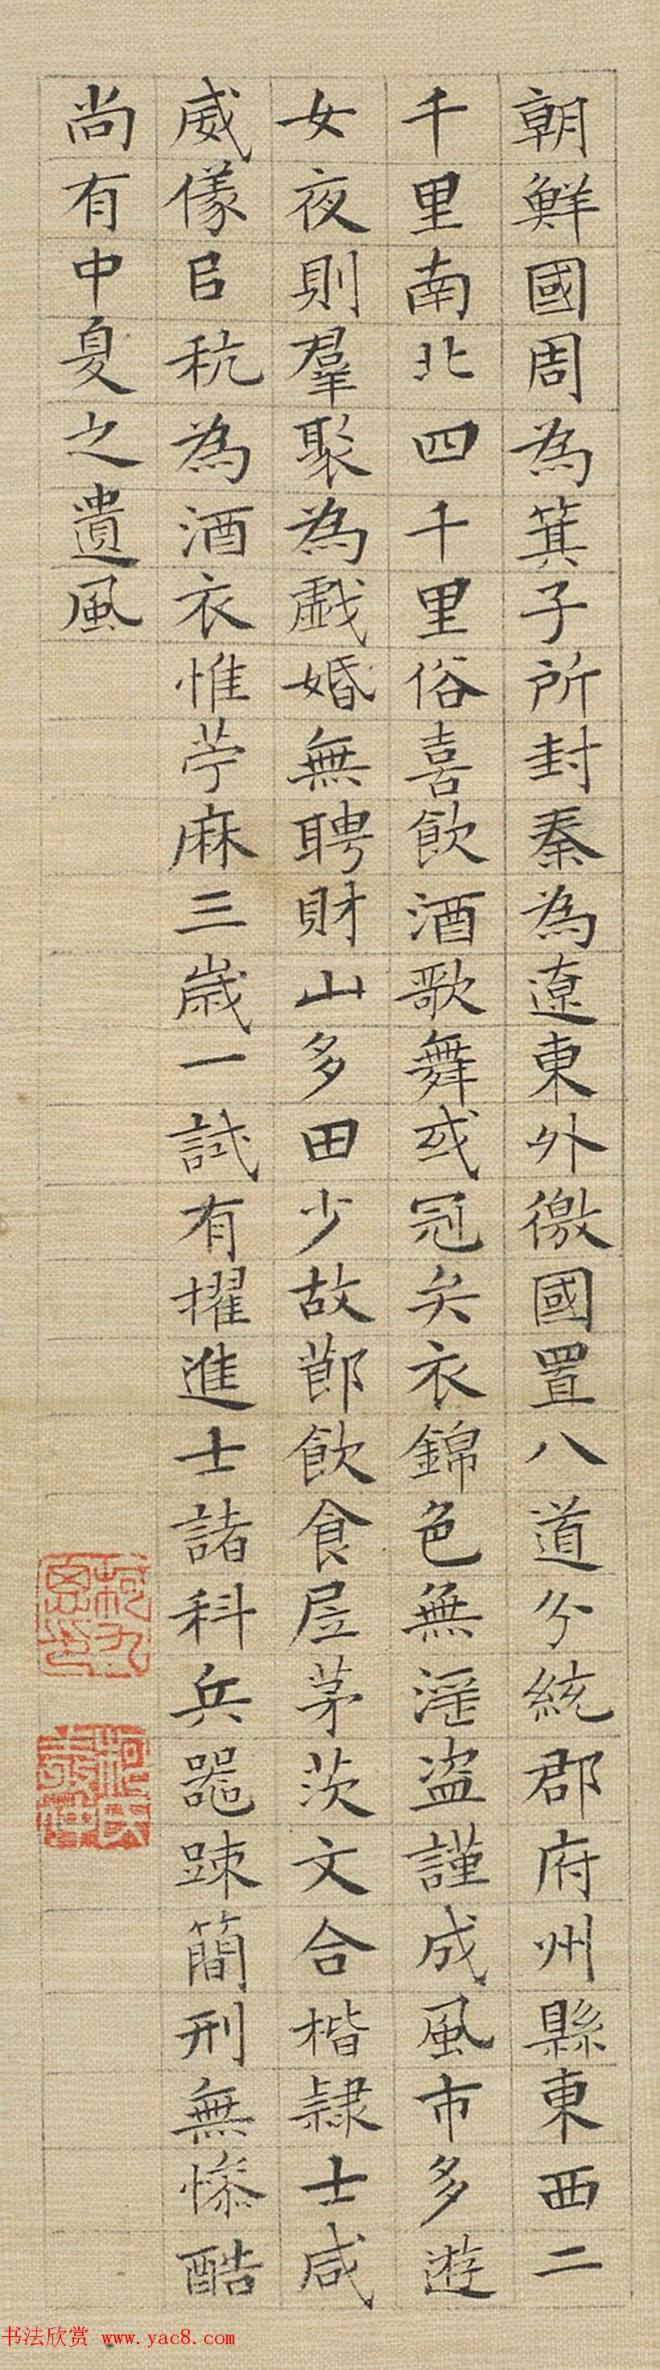 朝鮮國周為箕子所封秦為遼東外徼國置八道分統郡府州縣東西二
千里南北四千里俗喜飲酒歌舞或冠弁衣錦色無淫盜謹成風市多遊
女夜則羣聚為戲婚無聘財山多田少故節飲食屋茅茨文合楷隸士咸
威儀㠯秔為酒衣惟苧麻三歲一試有擢進士諸科兵器踈簡刑無慘酷
尚有中夏之遺風
柯九思印
书法欣赏 www.yac8.com